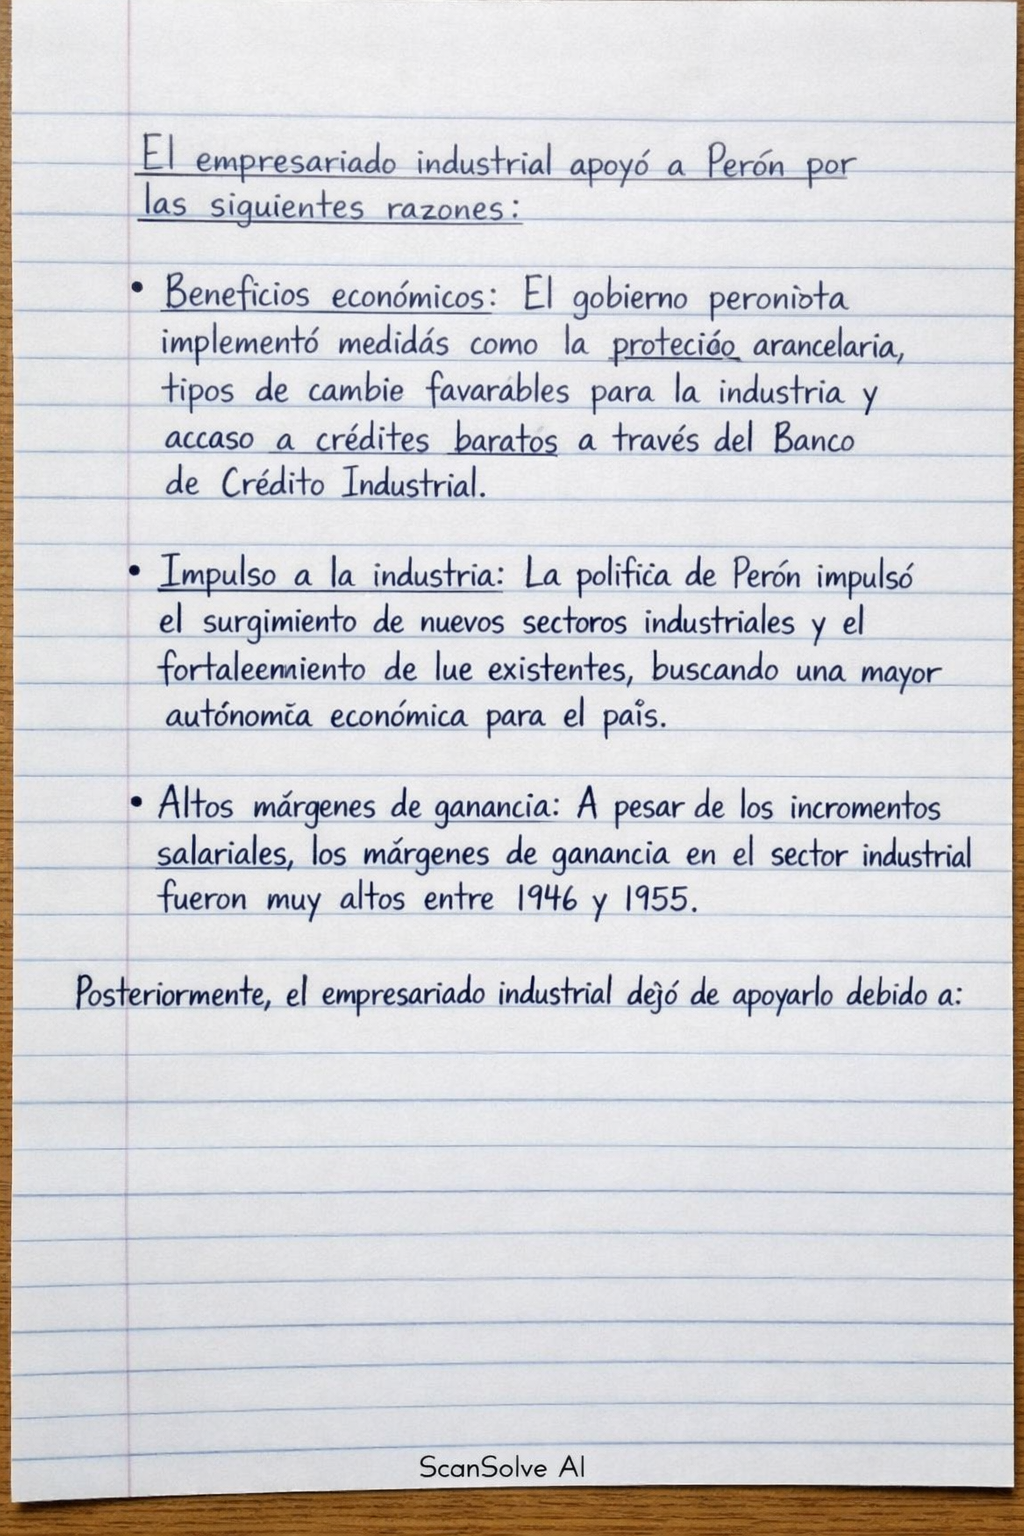 El empresariado industrial apoyó a Perón por
las siguientes razones:
• Beneficios económicos: El gobierno peroniota
implementó medidás como la protecióo arancelaria,
tipos de cambie favarables para la industria y
accaso a crédites baratos a través del Banco
de Crédito Industrial.
• Impulso a la industria: La polifica de Perón impulsó
el surgimiento de nuevos sectoros industriales y el
fortaleemniento de lue existentes, buscando una mayor
autónomia económica para el país.
• Altos márgenes de ganancia: A pesar de los incromentos
salariales, los márgenes de ganancia en el sector industrial
fueron muy altos entre 1946 y 1955.
Posteriormente, el empresariado industrial dejó de apoyarlo debido a:
ScanSolve AI